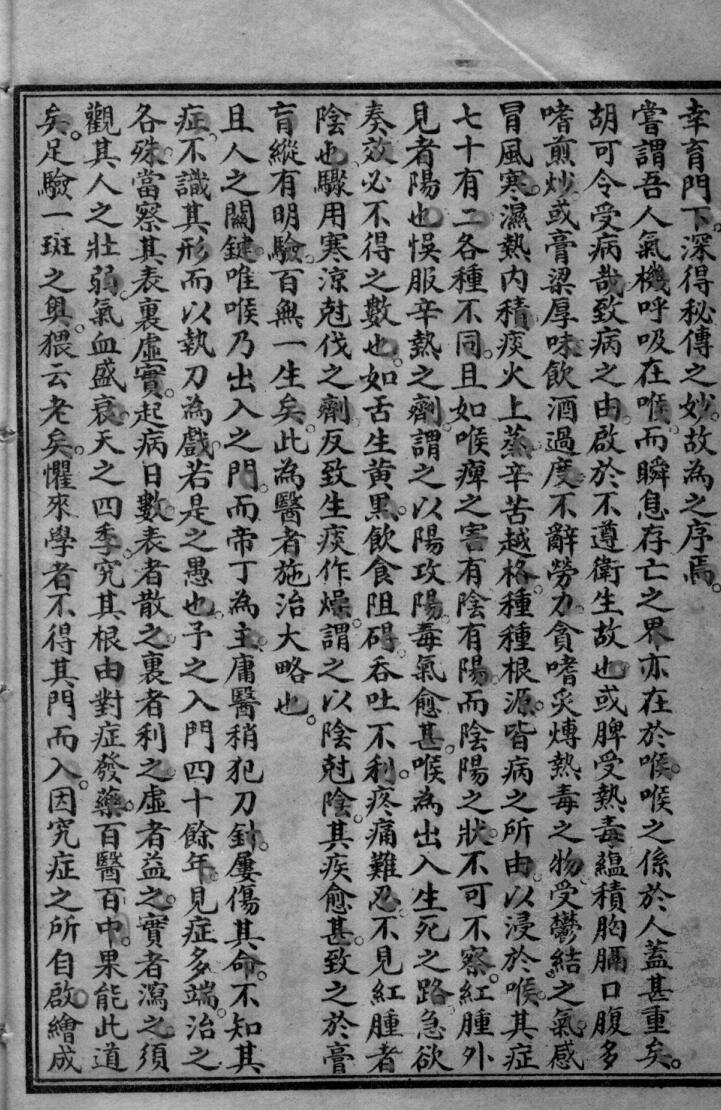 幸育門下。深得秘傳之妙。故為之序焉。
嘗謂吾人氣機呼吸在喉。而瞬息存亡之界亦在於喉。喉之係於人蓋甚重矣。
胡可令受病哉。致病之由。啟於不遵衛生故也。或脾受熱毒。縕積胸膈。口腹多
嗜煎炒。或膏粱厚味。飲酒過度。不辭勞力。貪嗜炙煿熱毒之物。受鬱結之氣。感
冒風寒。濕熱內積。痰火上蒸。辛苦越格。種種根源。皆病之所由。以浸於喉。其症
七十有二。各種不同。且如喉痺之害。有陰有陽。而陰陽之狀。不可不察。紅腫外
見者陽也。悞服辛熱之劑。謂之以陽攻陽。毒氣愈甚。喉為出入生死之路。急欲
奏效。必不得之數也。如舌生黃黑。飲食阻碍。吞吐不利。疼痛難忍。不見紅腫者
陰也。驟用寒涼尅伐之劑。反致生痰作燥。謂之以陰尅陰。其疾愈甚。致之於膏
肓。縱有明驗。百無一生矣。此為醫者施治大略也。
且人之關鍵。唯喉乃出入之門。而帝丁為主。庸醫稍犯刀針。屢傷其命。不知其
症。不識其形。而以執刀為戲。若是之愚也。予之入門四十餘年。見症多端。治之
各殊。當察其表裏虛實。起病日數。表者散之。裏者利之。虛者益之。實者瀉之。須
觀其人之壯弱。氣血盛衰。天之四季。究其根由。對症發藥。百醫百中。果能此道
矣。足驗一斑之奧。猥云老矣。懼來學者不得其門而入。因究症之所自啟。繪成